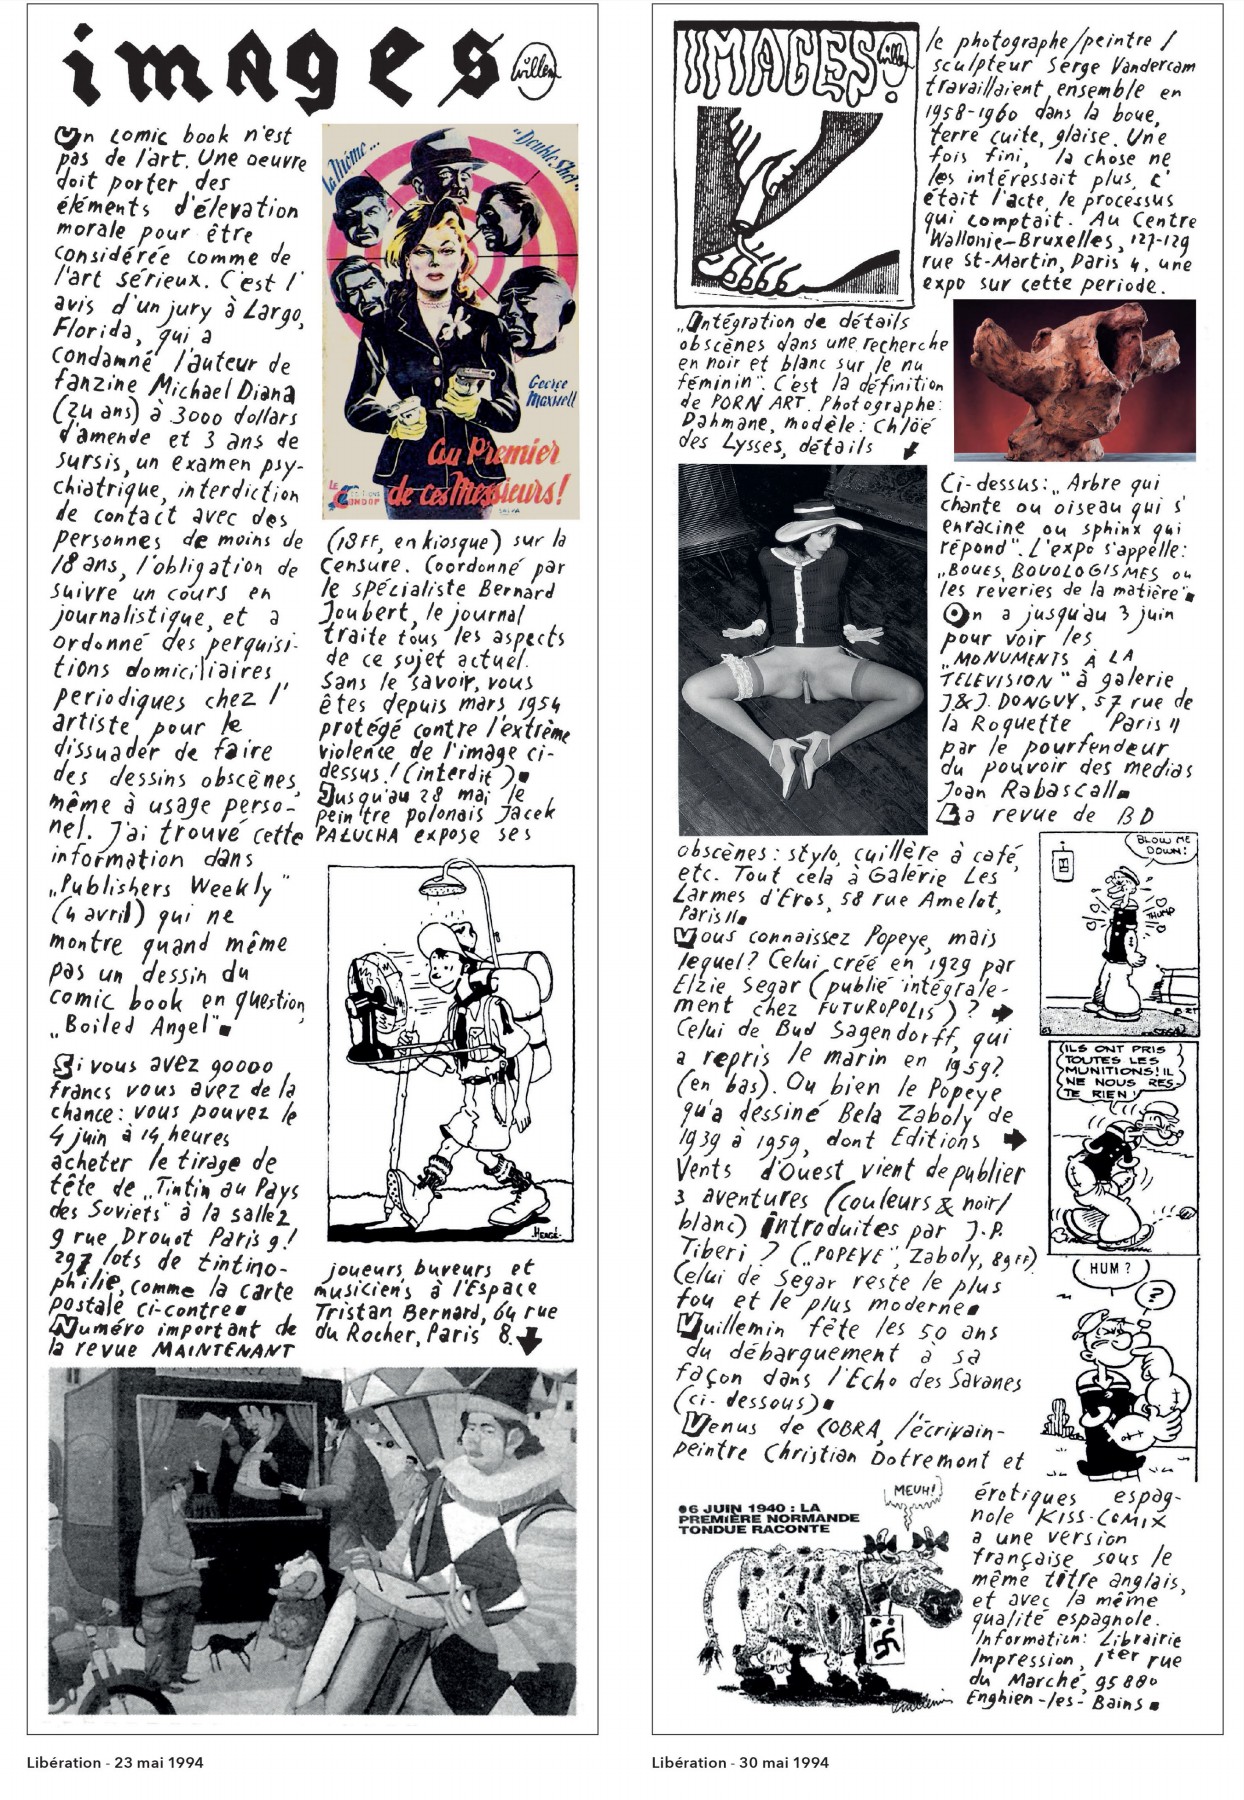 images
Willem
Un comic book n'est
pas de l'art. Une oeuvre
doit porter des
éléments d'élevation
morale pour être
considérée comme de
l'art sérieux. C'est l'
avis d'un jury à Largo,
Florida, qui a
condamné l'auteur de
fanzine Michael Diana
(24 ans) à 3000 dollars
d'amende et 3 ans de
sursis, un examen psy-
chiatrique, interdiction
de contact avec des
personnes de moins de
18 ans, l'obligation de
suivre un cours en
journalistique, et a
ordonné des perquisi-
tions domiciliaires
periodiques chez l'
artiste pour le
dissuader de faire
des dessins obscènes,
même à usage perso-
nel. J'ai trouvé cette
information dans
„Publishers Weekly"
(4 avril) qui ne
montre quand même
pas un dessin du
comic book en question,
„Boiled Angel"■
Si vous avez 90000
francs vous avez de la
chance: vous pouvez le
4 juin à 14 heures
acheter le tirage de
tête de „Tintin au Pays
des Soviets" à la salle 2
9 rue Drouot Paris 9!
297 lots de tintino-
philie, comme la carte
postale ci-contre■
Numéro important de
la revue MAINTENANT
la Môme...
"Double Shot"
George
Maxwell
Au Premier
de ces Messieurs!
LE
CONDOR
(18FF, en kiosque) sur la
censure. Coordonné par
le spécialiste Bernard
Joubert, le journal
traite tous les aspects
de ce sujet actuel.
Sans le savoir, vous
êtes depuis mars 1954
protégé contre l'extrème
violence de l'image ci-
dessus! (interdit)■
Jusqu'au 28 mai le
peintre polonais Jacek
PAŁUCHA expose ses
HERGÉ-
joueurs, buveurs et
musiciens à l'Espace
Tristan Bernard, 64 rue
du Rocher, Paris 8.
Libération - 23 mai 1994
IMAGES!
Willem
„Intégration de détails
obscènes dans une recherche
en noir et blanc sur le nu
féminin". C'est la définition
de PORN ART. Photographe:
Dahmane, modèle: Chlöé
des Lysses, détails
obscènes: stylo, cuillère à café,
etc. Tout cela à Galerie Les
Larmes d'Eros, 58 rue Amelot,
Paris 11■
Vous connaissez Popeye, mais
lequel? Celui créé en 1929 par
Elzie Segar (publié intégrale-
ment chez FUTUROPOLIS)?
Celui de Bud Sagendorff, qui
a repris le marin en 1959?
(en bas). Ou bien le Popeye
qu'a dessiné Bela Zaboly de
1939 à 1959, dont Editions
Vents d'Ouest vient de publier
3 aventures (couleurs & noir/
blanc) introduites par J.P.
Tiberi? („POPEYE", Zaboly, 89FF)
Celui de Segar reste le plus
fou et le plus moderne■
Vuillemin fête les 50 ans
du débarquement à sa
façon dans l'Echo des Savanes
(ci-dessous)■
Venus de COBRA, l'écrivain-
peintre Christian Dotremont et
le photographe/peintre/
sculpteur Serge Vandercam
travaillaient ensemble en
1958-1960 dans la boue,
terre cuite, glaise. Une
fois fini, la chose ne
les intéressait plus, c'
était l'acte, le processus
qui comptait. Au Centre
Wallonie-Bruxelles, 127-129
rue St-Martin, Paris 4, une
expo sur cette periode.
Ci-dessus: „Arbre qui
chante ou oiseau qui s'
enracine ou sphinx qui
répond". L'expo s'appelle:
„BOUES, BOUOLOGISMES ou
les reveries de la matière"■
On a jusqu'au 3 juin
pour voir les
„MONUMENTS À LA
TELEVISION" à galerie
J.&J. DONGUY, 57 rue de
la Roquette Paris 11
par le pourfendeur
du pouvoir des medias
Joan Rabascall■
La revue de BD
BLOW ME
DOWN!
THUMP
SEGAR
ILS ONT PRIS
TOUTES LES
MUNITIONS! IL
NE NOUS RES-
TE RIEN!
HUM?
?
●6 JUIN 1940 : LA
PREMIÈRE NORMANDE
TONDUE RACONTE
MEUH!
Vuillemin
érotiques espag-
nole KISS-COMIX
a une version
française sous le
même titre anglais,
et avec la même
qualité espagnole.
Information: Librairie
Impression, 1ter rue
du Marché, 95880
Enghien-les-Bains■
Libération - 30 mai 1994